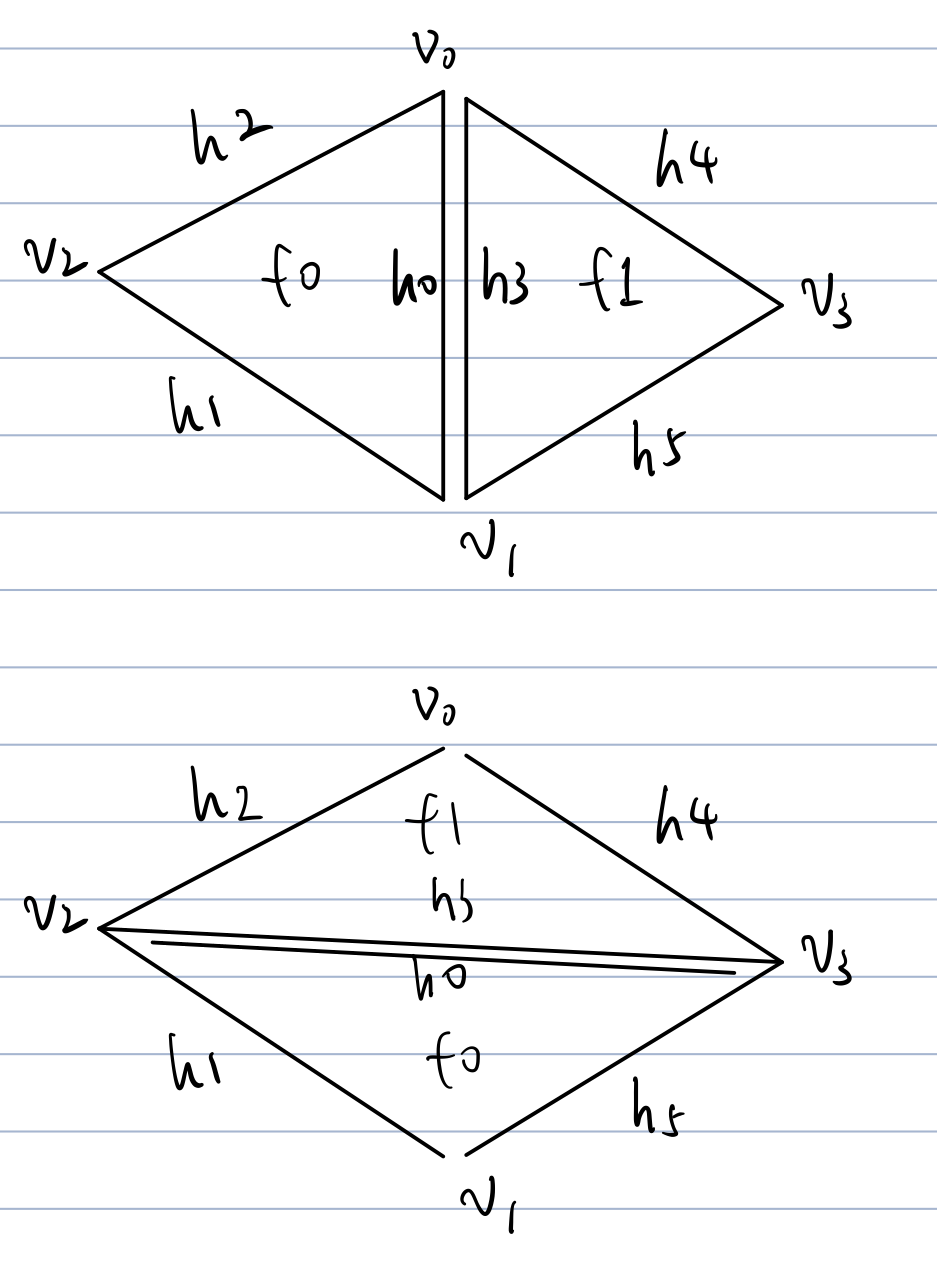 v0
h2
h4
v2
f0
h0
h3
f1
v3
h1
h5
v1
v0
h2
f1
h4
v2
h3
v3
h0
h1
f0
h5
v1